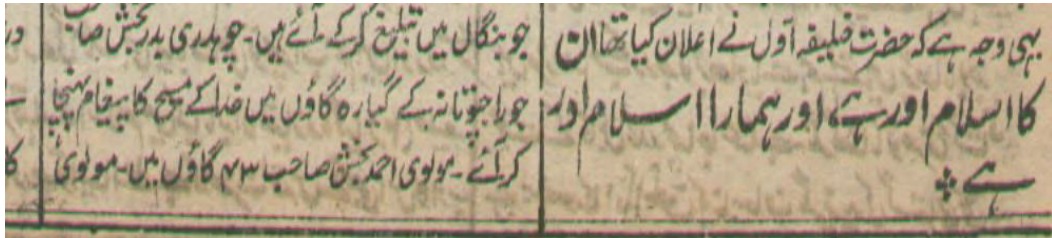 یہی وجہ ہے کہ حضرت خلیفہ اول نے اعلان کیا تھا ان
کا اسلام اور ہے، اور ہمارا اسلام اور
ہے ⁘
جو بنگال میں تبلیغ کرکے آئے ہیں۔ چوہدری بدر بخش صاحب
جو راجپوتانہ کے گیارہ گاؤں میں خدا کے مسیح کا پیغام پہنچا
کر آئے۔ مولوی احمد بخش صاحب ۷۳ گاؤں میں۔ مولوی